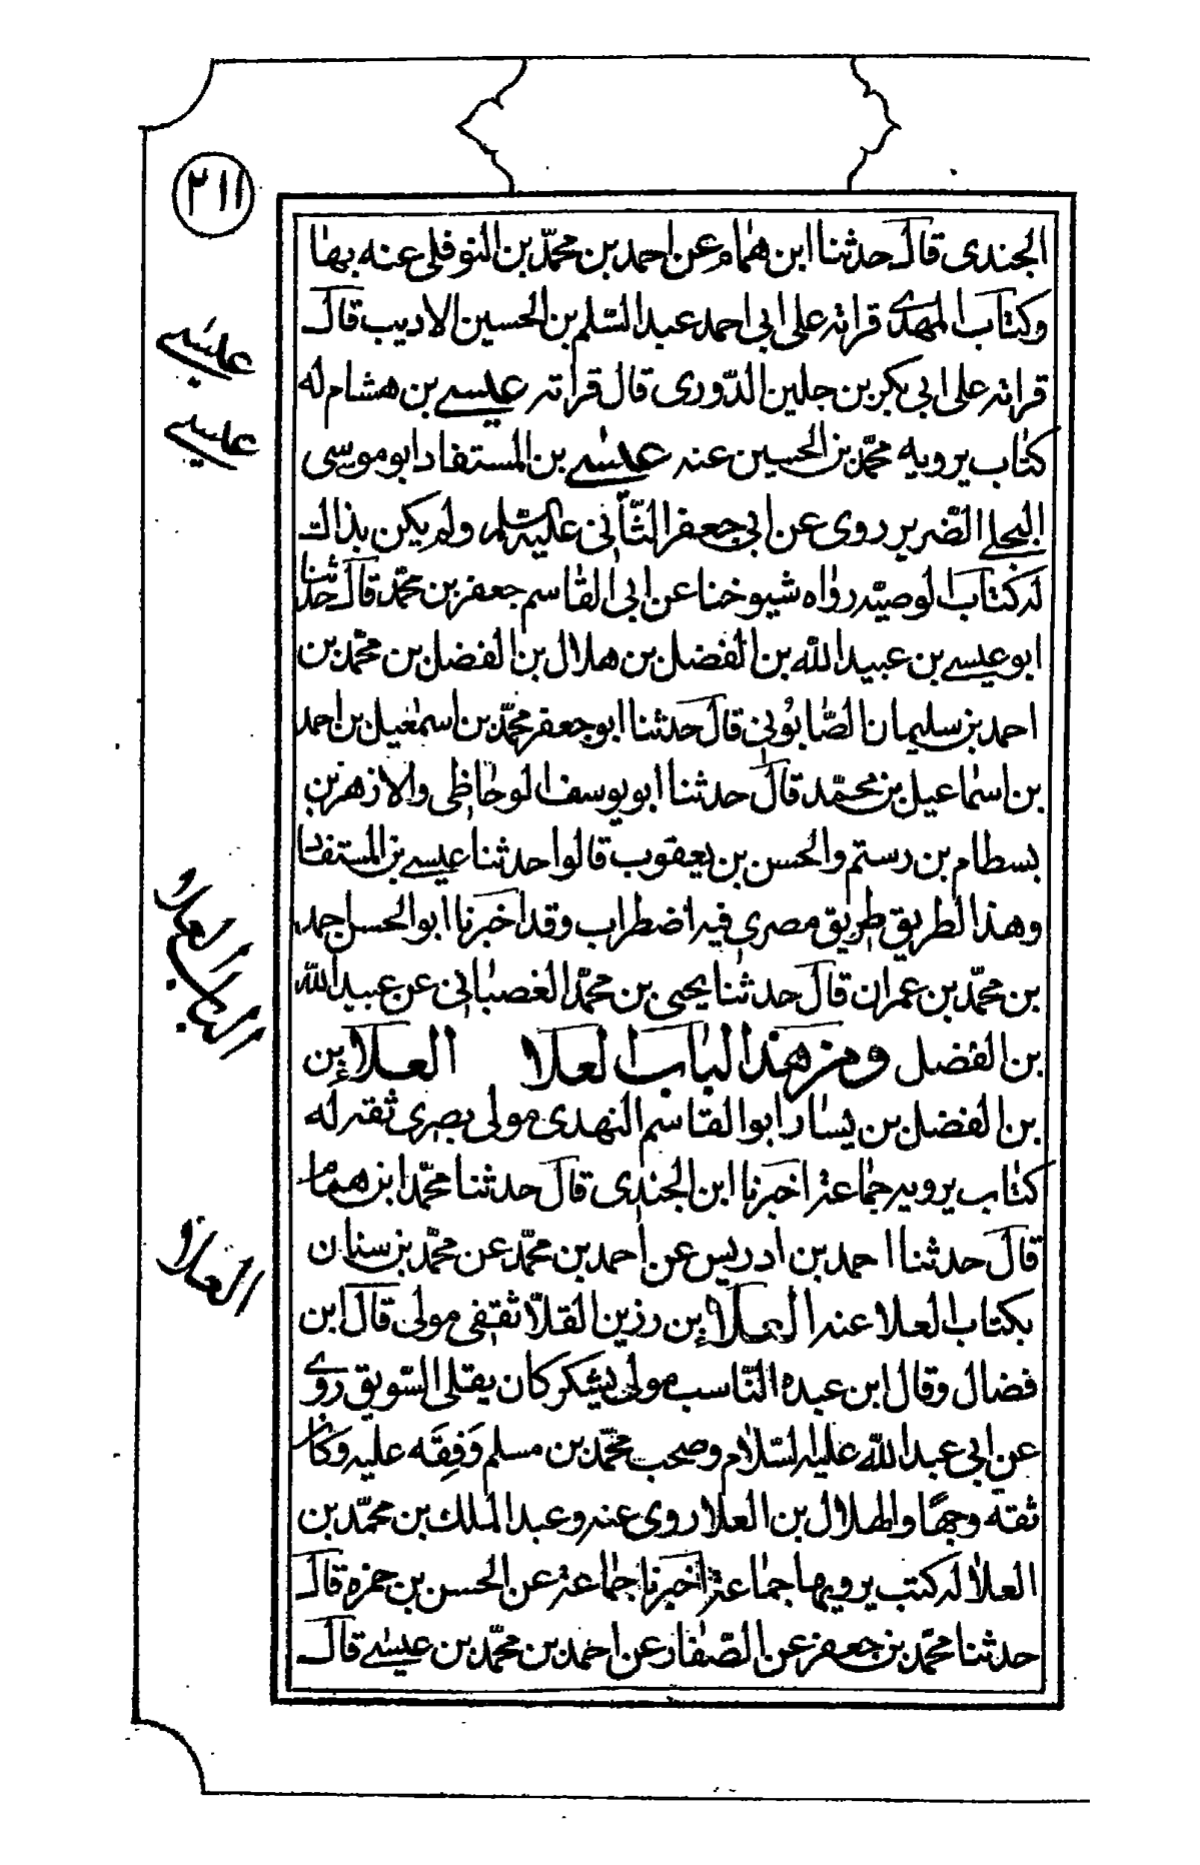 ٢١١
الجندى قال حدثنا ابن همام عن احمد بن محمّد بن النوفلى عنه بها
وكتاب المهدى قراته على ابى احمد عبد السّلم بن الحسين الاديب قال
قراته على ابى بكر بن جلين الدّورى قال قراته عيسے بن هشام له
كتاب يرويه محمّد بن الحسين عنه عيسے بن المستفاد ابو موسى
البجلے الضّرير روى عن ابى جعفر الثّانى عليه السّلم ولم يكن بذاك
له كتاب الوصيّه رواه شيوخنا عن ابى القاسم جعفر بن محمّد قال حدثنا
ابو عيسے بن عبيد اللّه بن الفضل بن هلال بن الفضل بن محمّد بن
احمد بن سليمان الصّابونى قال حدثنا ابو جعفر محمّد بن اسمعيل بن احمد
بن اسماعيل بن محمّد قال حدثنا ابو يوسف الوحاظى والازهر بن
بسطام بن رستم والحسن بن يعقوب قالوا حدثنا عيسے بن المستفاد
وهذا الطريق طريق مصرى فيه اضطراب وقد اخبرنا ابو الحسن احمد
بن محمّد بن عمران قال حدثنا يحيى بن محمّد الغصبانى عن عبيد اللّه
بن الفضل ومن هذا الباب العلا العلا بن
بن الفضل بن يسار ابو القاسم النهدى مولى بصرى ثقه له
كتاب يرويه جماعة اخبرنا ابن الجندى قال حدثنا محمّد ابن همام
قال حدثنا احمد بن ادريس عن احمد بن محمّد عن محمّد بن سنان
بكتاب العلا عنه العلا بن رزين القلّا ثقفى مولى قال ابن
فضال وقال ابن عبده النّاسب مولى يشكر كان يقلى السّويق روى
عن ابى عبد اللّه عليه السّلام وصحب محمّد بن مسلم وَفِقَه عليه وكان
ثقه وجهًا والهلال بن العلا روى عنه وعبد الملك بن محمّد بن
العلا له كتب يرويها جماعة اخبرنا جماعة عن الحسن بن حمزه قال
حدثنا محمّد بن جعفر عن الصّفار عن احمد بن محمّد بن عيسے قال
عيسے
عيسے
الباب العلا
العلا